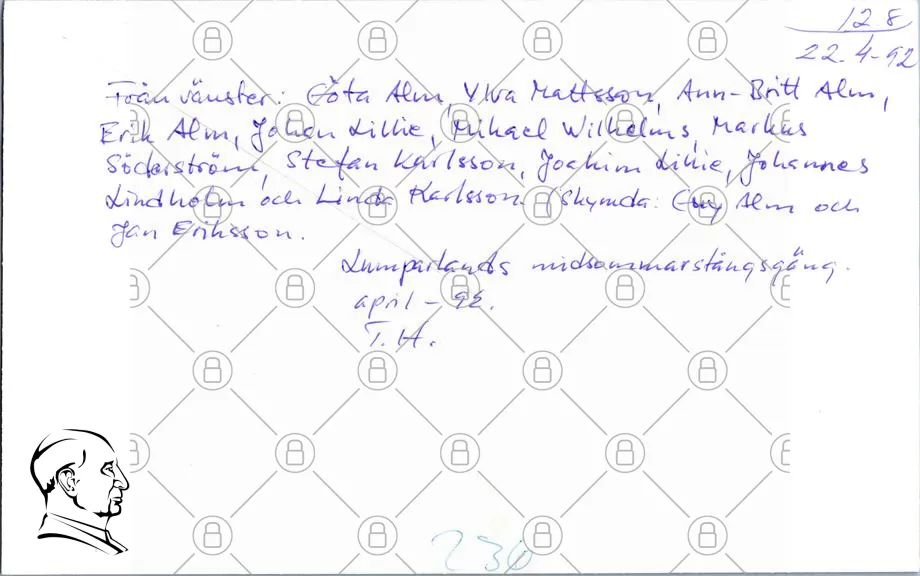 128
22.4-92
Från vänster: Göta Alm, Ylva Mattsson, Ann-Britt Alm,
Erik Alm, Johan Lillie, Mikael Wilhelms, Markus
Söderström, Stefan Karlsson, Joakim Lillie, Johannes
Lindholm och Linda Karlsson. (Skymda: Guy Alm och
Jan Eriksson.
Lumparlands midsommarstångsgäng.
april - 92.
T.H.
236